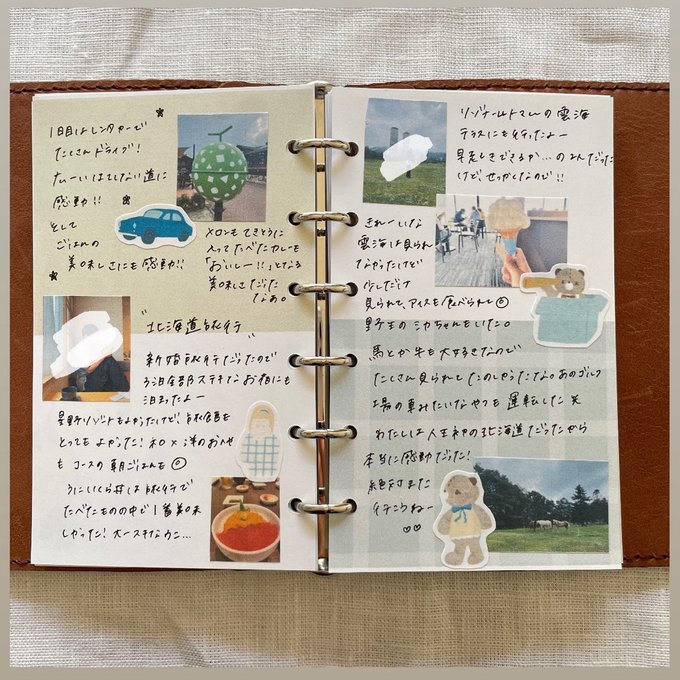 1日目はレンタカーで
たくさんドライブ!
ながーいはてしない道に
感動!!
そして
ごはんの
美味しさにも感動!!
メロンもてきとうに
入ってたべたカレーも
「おいしー!!」となる
美味しさだった
なぁ。
"北海道旅行"
新婚旅行だったので
3泊全部ステキなお宿にも
泊まったよー
星野リゾートもよかったけど、旅館も
とってもよかった!和×洋のおへや
も コースの朝ごはんも
うにいくら丼は旅行で
たべたものの中で1番美味
しかった!大ースキなうに...
リゾナーレトマムの雲海
テラスにも行ったよー
早起きできるか...のみだった
けど、せっかくなので!!
きれーいな
雲海は見られ
なかったけど
少しだけ
見られて、アイスも食べられて
野生のシカちゃんもいた。
馬とか牛も大好きなので
たくさん見られてたのしかったな。あのゴルフ
場の車みたいなやつも運転した笑
わたしは人生初の北海道だったから
本当に感動だった!
絶対また
行こうねー
♡♡